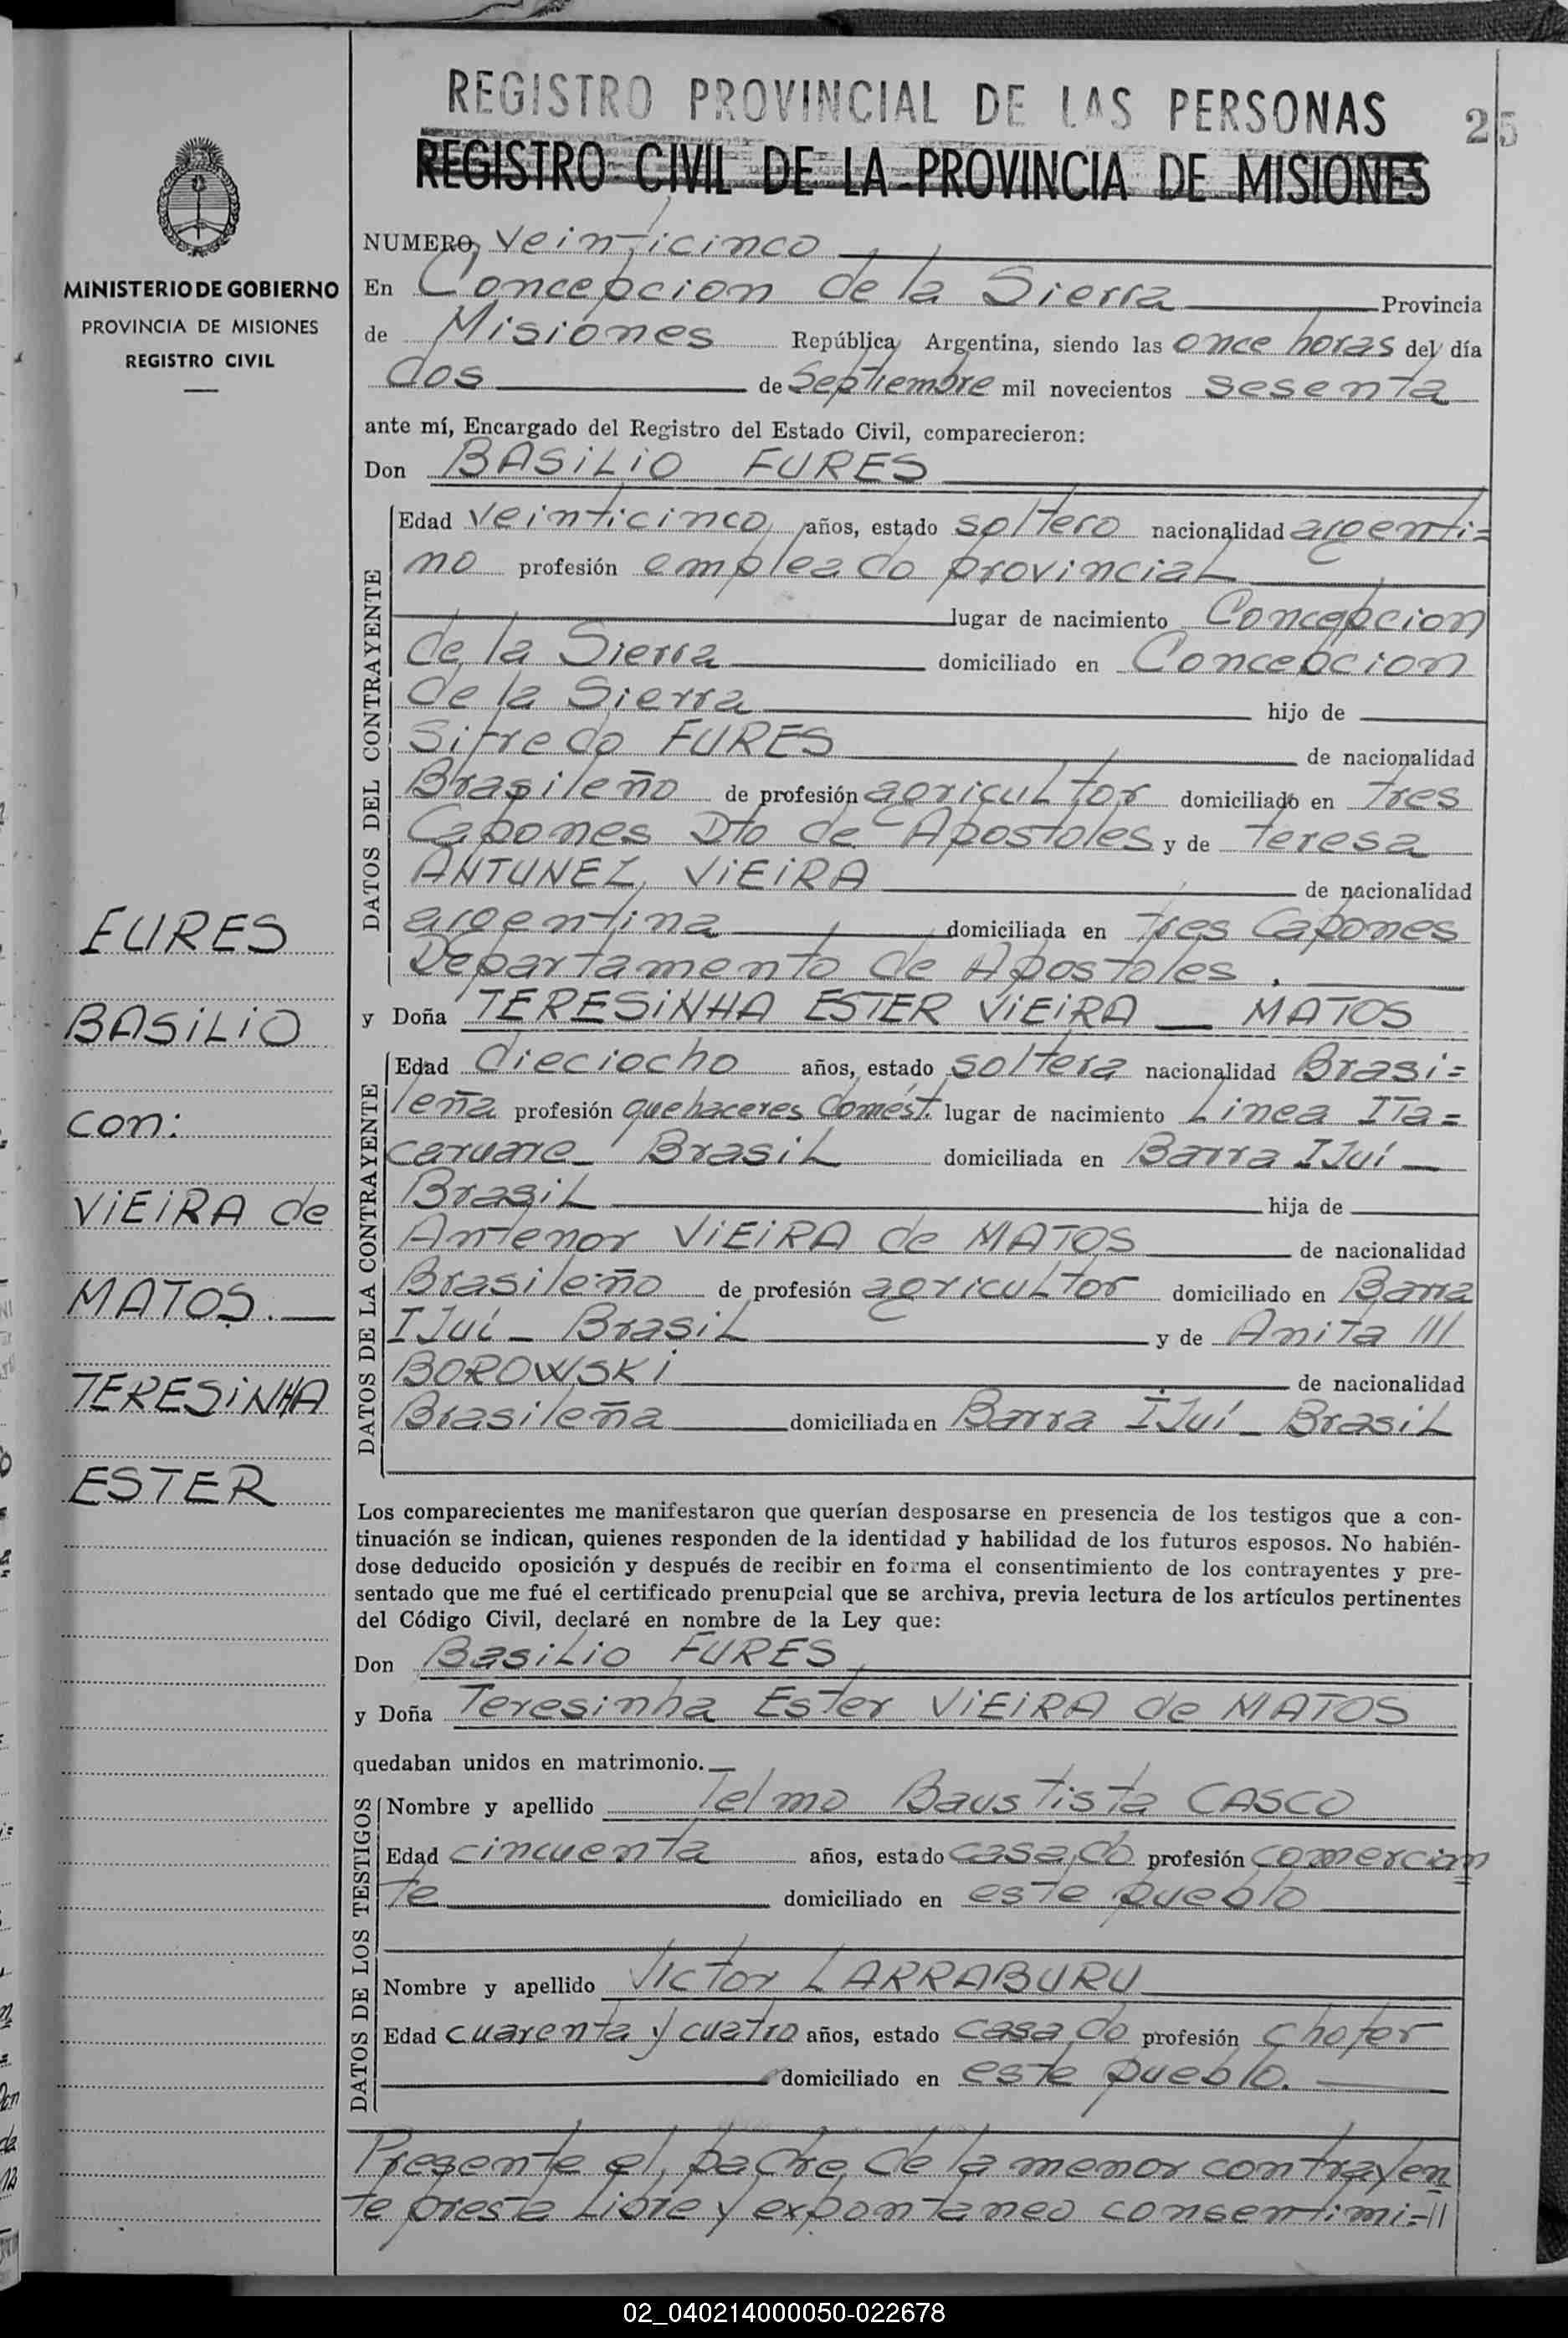 REGISTRO PROVINCIAL DE LAS PERSONAS
25
REGISTRO CIVIL DE LA PROVINCIA DE MISIONES
MINISTERIO DE GOBIERNO
PROVINCIA DE MISIONES
REGISTRO CIVIL
FURES
BASILIO
con:
VIEIRA de
MATOS.
TERESINHA
ESTER
NUMERO, veinticinco
En Concepcion de la Sierra Provincia
de Misiones República Argentina, siendo las once horas del día
dos de Septiembre mil novecientos sesenta
ante mí, Encargado del Registro del Estado Civil, comparecieron:
Don BASILIO FURES
DATOS DEL CONTRAYENTE
Edad veinticinco años, estado soltero nacionalidad argenti=
no profesión empleado provincial
lugar de nacimiento Concepcion
de la Sierra domiciliado en Concepcion
de la Sierra hijo de
Sifredo FURES de nacionalidad
Brasileño de profesión agricultor domiciliado en Tres
Capones Dto de Apostoles y de Teresa
ANTUNEZ VIEIRA de nacionalidad
argentina domiciliada en Tres Capones
Departamento de Apostoles.
y Doña TERESINHA ESTER VIEIRA — MATOS
DATOS DE LA CONTRAYENTE
Edad dieciocho años, estado soltera nacionalidad Brasi=
leña profesión quehaceres domést. lugar de nacimiento Linea ITa=
caruare_ Brasil domiciliada en Barra IJuí —
Brasil hija de
Antenor VIEIRA de MATOS de nacionalidad
Brasileño de profesión agricultor domiciliado en Barra
IJuí _ Brasil y de Anita ///
BOROWSKI de nacionalidad
Brasileña domiciliada en Barra IJuí _ Brasil
Los comparecientes me manifestaron que querían desposarse en presencia de los testigos que a con-
tinuación se indican, quienes responden de la identidad y habilidad de los futuros esposos. No habién-
dose deducido oposición y después de recibir en forma el consentimiento de los contrayentes y pre-
sentado que me fué el certificado prenupcial que se archiva, previa lectura de los artículos pertinentes
del Código Civil, declaré en nombre de la Ley que:
Don Basilio FURES
y Doña Teresinha Ester VIEIRA de MATOS
quedaban unidos en matrimonio.
DATOS DE LOS TESTIGOS
Nombre y apellido Telmo Baustista CASCO
Edad cincuenta años, estado casado profesión comercian
te domiciliado en este pueblo
Nombre y apellido Victor LARRABURU
Edad cuarenta y cuatro años, estado casado profesión chofer
domiciliado en este pueblo.
Presente el padre de la menor contrayen
te presta libre y expontaneo consentimi=//
02_040214000050-022678